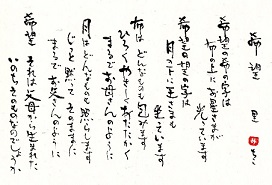 希望 里 みちこ
希望の希の字は
布の上にお星さまが
光っています
希望の望の字は
月の下に王さまも
坐っています
布はどんなものも包みます
ひろくやさしくあたたかく
まるでお母さんのように
月はどんなものも照らします
じっと黙ってそのままに
まるでお父さんのように
希望 それは父母から生まれた
いのちそのものなのでしょうか